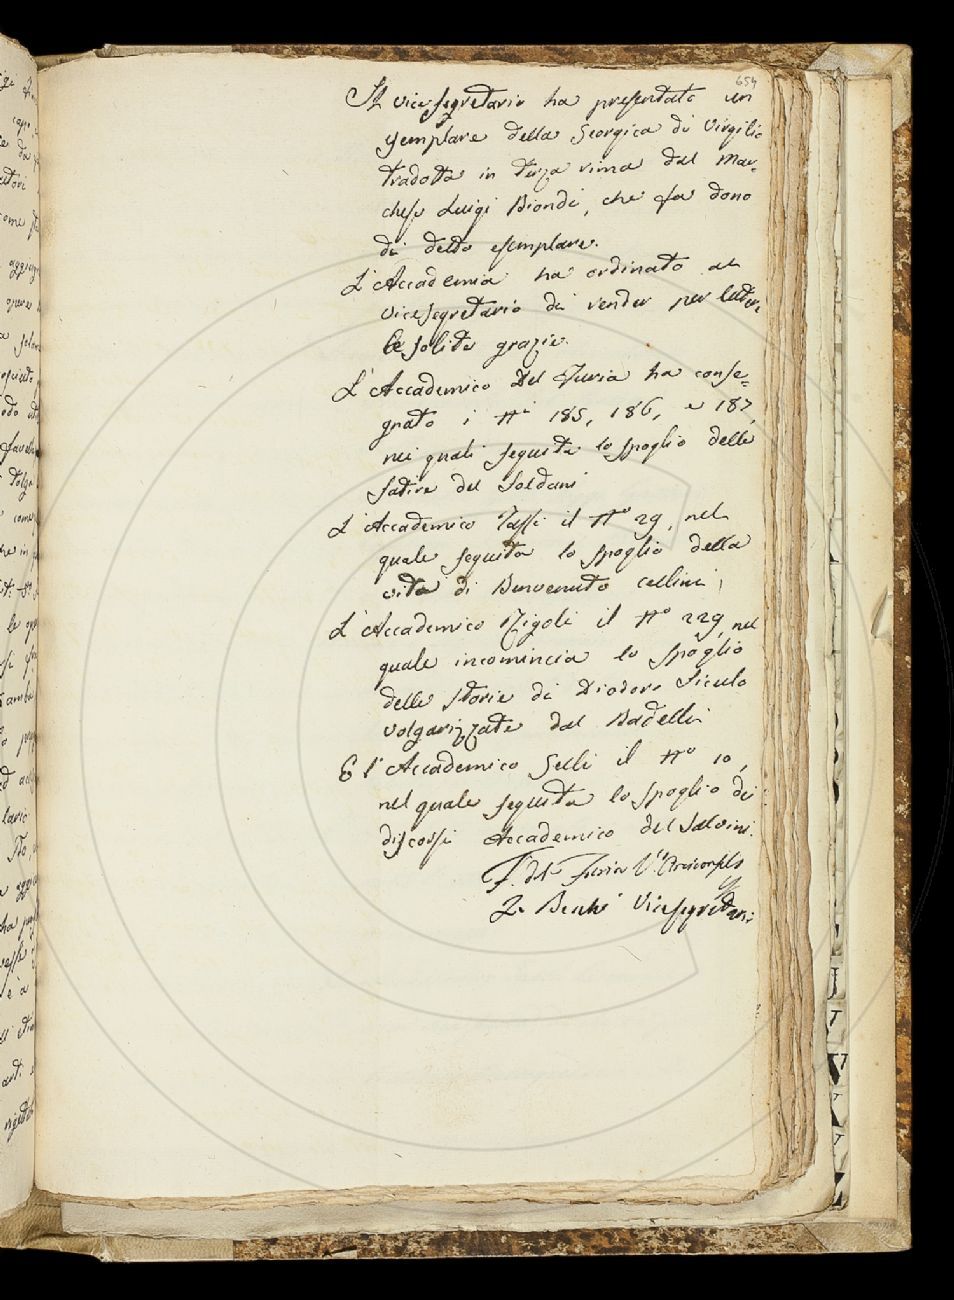 654
Il vice segretario ha presentato un
esemplare della Georgica di Virgilio
tradotta in terza rima dal Mar-
chese Luigi Biondi, che fa dono
di detto esemplare.
L'Accademia ha ordinato al
vicesegretario di render per lettera
le solite grazie.
L'Accademico Del Furia ha conse=
gnato i Ni 185, 186, e 187,
nei quali seguita lo spoglio delle
Satire del Soldani
L'Accademico Tassi il No 29, nel
quale seguita lo spoglio della
vita di Benvenuto Cellini;
L'Accademico Rigoli il No 229, nel
quale incomincia lo spoglio
delle storie di Diodoro Siculo
volgarizzate dal Badelli
E l'Accademico Gelli il No 10,
nel quale seguita lo spoglio dei
discorsi Accademico del Salvini.
F. del Furia Ve Arciconsolo
Z. Becchi Vicesegretario